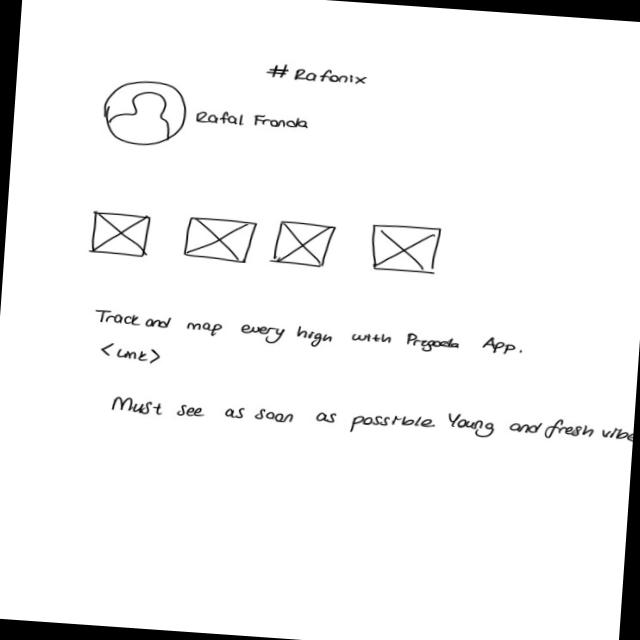 # Rafonix
Rafal Franda
Track and map every high with Pregoda App.
<Link>
Must see as soon as possible. Young and fresh vibe